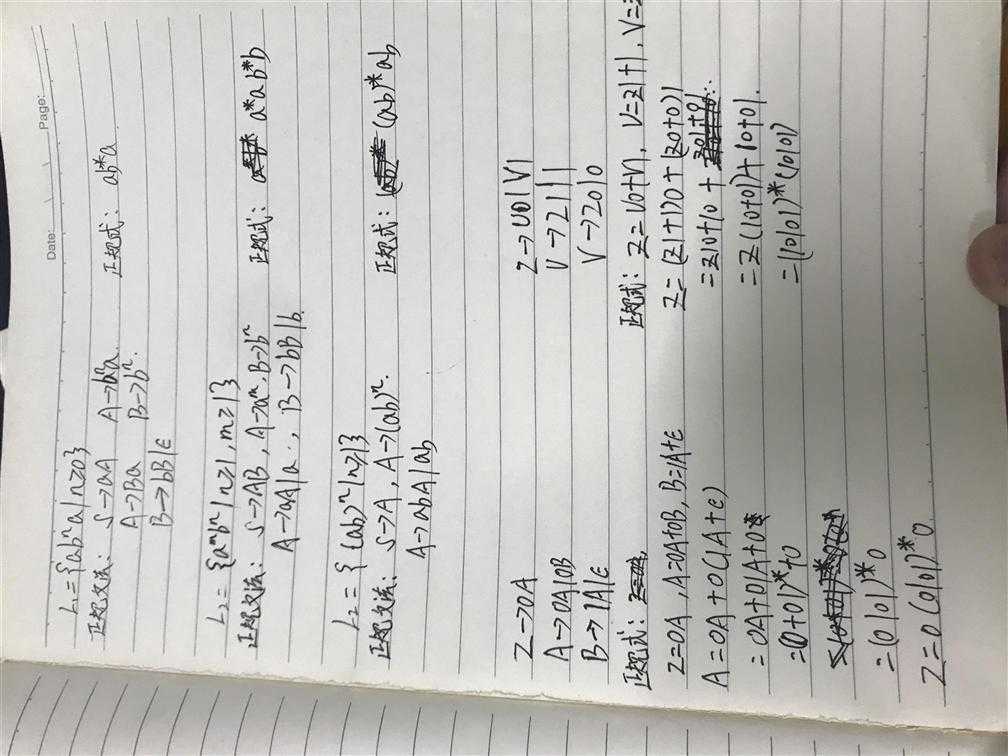 Date: Page:
L₁={abⁿa|n≥0}
正规文法: S→aA A→bⁿa. 正规式: ab*a
A→Ba B→bⁿ.
B→bB|ε
L₂={aᵐbⁿ|n≥1,m≥1}
正规文法: S→AB, A→aᵐ, B→bⁿ 正规式: a*ab*b
A→aA|a, B→bB|b.
L₂={(ab)ⁿ|n≥1}
正规文法: S→A, A→(ab)ⁿ. 正规式: (ab)*ab
A→abA|ab
Z→0A
A→0A|0B
B→1A|ε
正规式:
Z=0A, A=0A+0B, B=1A+ε
A=0A+0(1A+ε)
=0A+01A+0
=(0+01)*0
=(0|01)*0
Z=0(0|01)*0
Z→U0|V1
U→Z1|1
V→Z0|0
正规式: Z=U0+V1, U=Z1+1, V=
Z=(Z1+1)0+(Z0+0)1
=Z10+10+Z01+01
=Z(10+01)+10+01.
=(10|01)*(10|01)